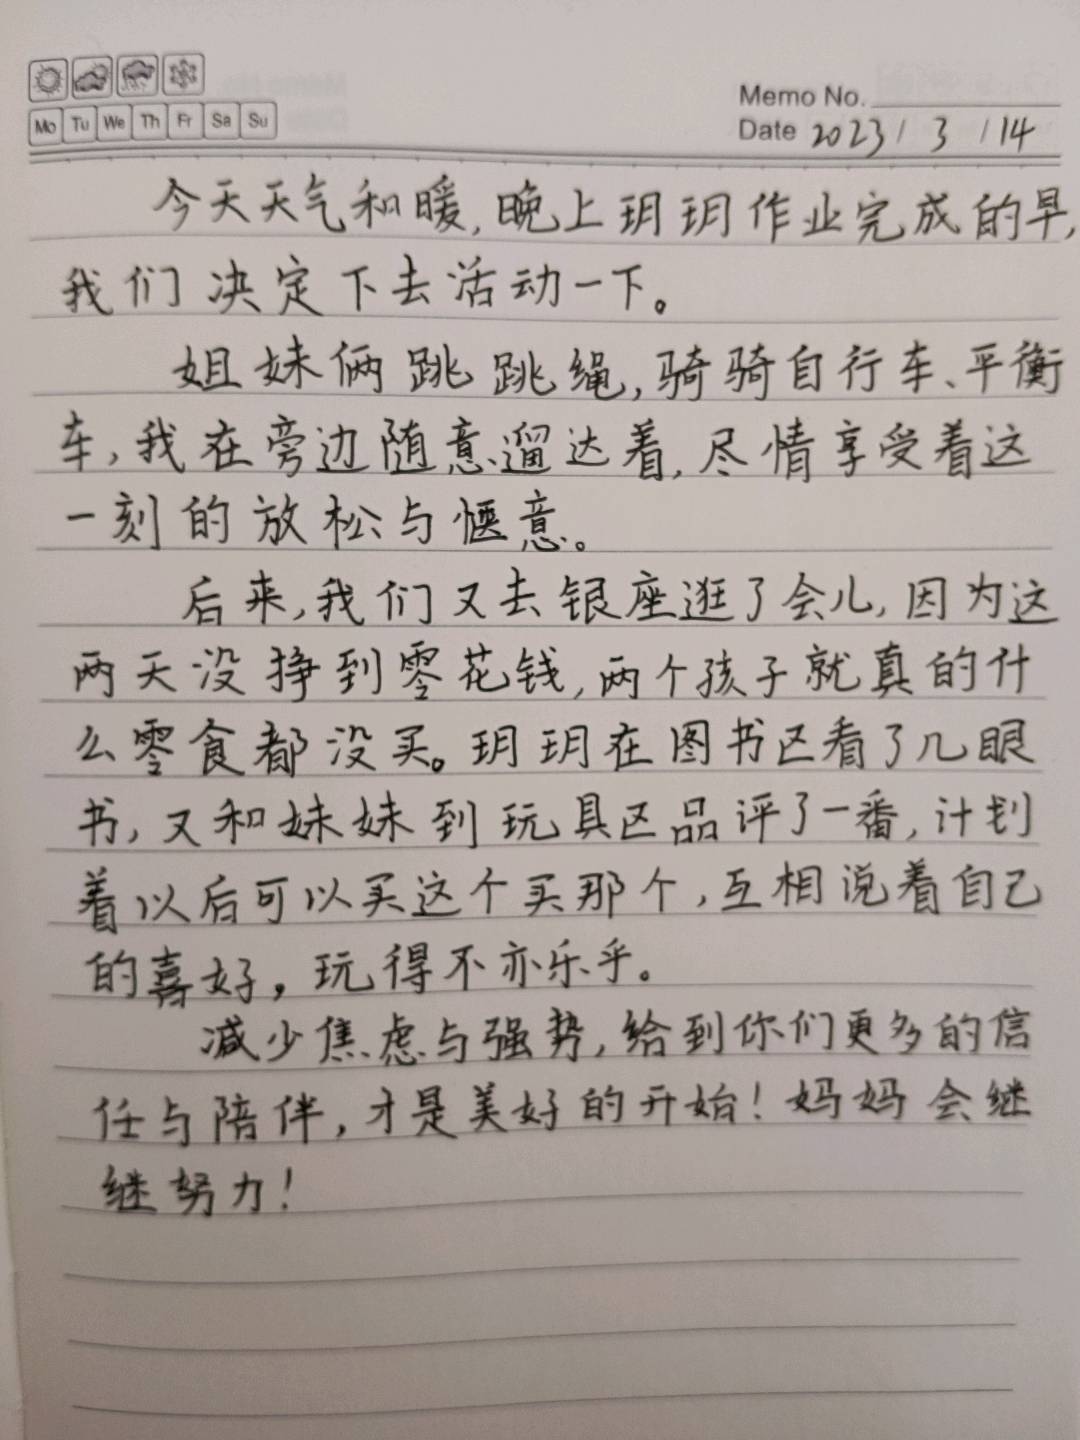 Mo Tu We Th Fr Sa Su
Memo No.
Date 2023/3/14
今天天气和暖,晚上玥玥作业完成的早,
我们决定下去活动一下。
姐妹俩跳跳绳,骑骑自行车、平衡
车,我在旁边随意遛达着,尽情享受着这
一刻的放松与惬意。
后来,我们又去银座逛了会儿,因为这
两天没挣到零花钱,两个孩子就真的什
么零食都没买。玥玥在图书区看了几眼
书,又和妹妹到玩具区品评了一番,计划
着以后可以买这个买那个,互相说着自己
的喜好,玩得不亦乐乎。
减少焦虑与强势,给到你们更多的信
任与陪伴,才是美好的开始!妈妈会继
继努力!